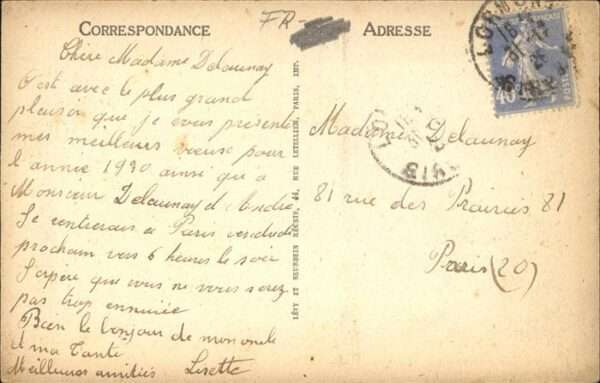 CORRESPONDANCE
FR-
ADRESSE
Chère Madame Delaunay
C'est avec le plus grand
plaisir que je vous présente
mes meilleurs voeux pour
l'année 1930 ainsi que à
Monsieur Delaunay et André
Je rentrerais à Paris vendredi
prochain vers 6 heures le soir
J'espère que vous ne vous serez
pas trop ennuiée
Bien le bonjour de mon oncle
et ma Tante
Meilleures amitiés Lisette
LÉVY ET NEURDEIN RÉUNIS, 44, RUE LETELLIER, PARIS, IMP.
Madame Delaunay
81 rue des Prairies 81
Paris (20)
LORMONT
40